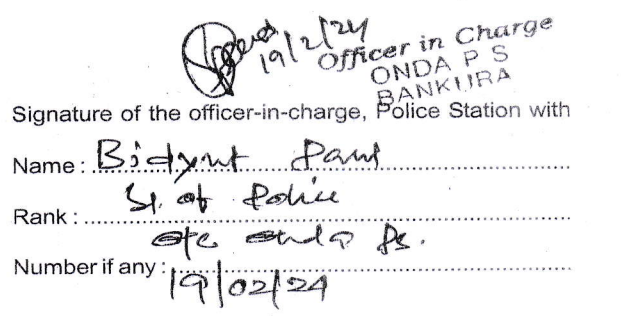 19/2/24
Officer in Charge
ONDA P S
BANKURA
Signature of the officer-in-charge, Police Station with
Name : Bidyut Paul
Rank : SI. of Police
O/C Onda Ps.
Number if any :
19/02/24